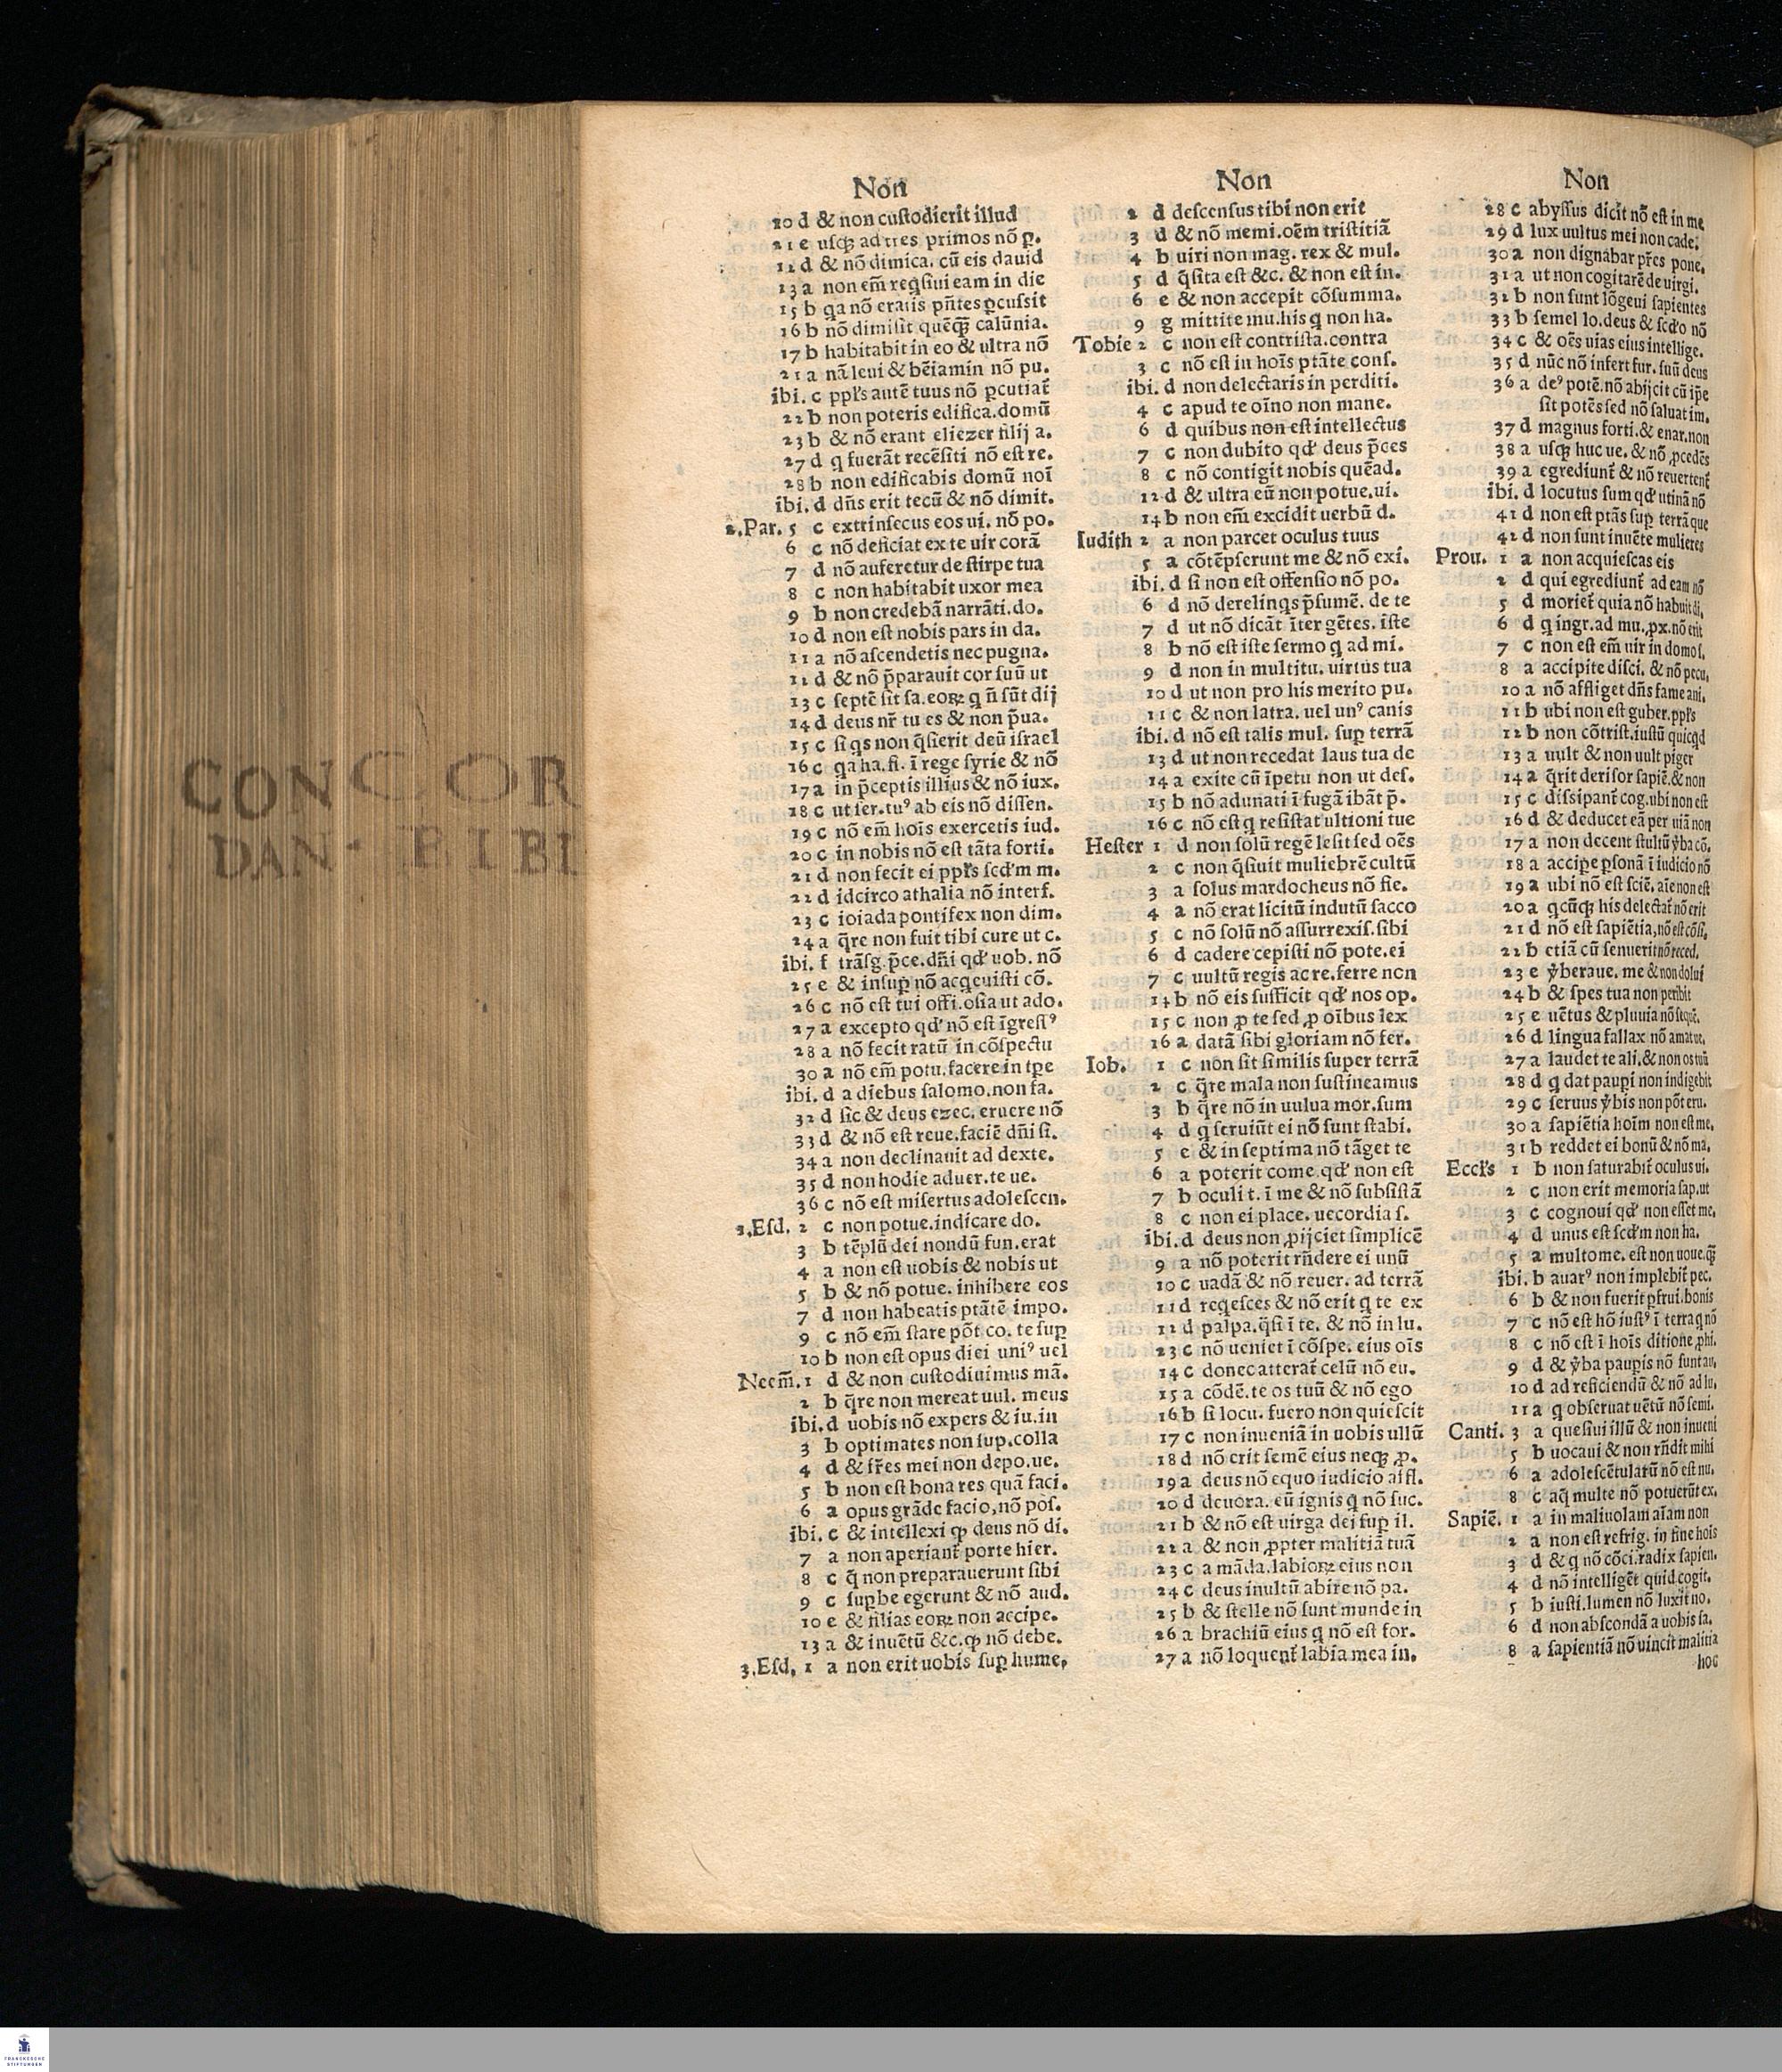 CONCOR
DAN· BIBL
Non
10 d & non cuſtodierit illud
21 e uſq; ad tres primos nõ ꝑ.
12 d & nõ dimica. cũ eis dauid
13 a non em̃ reqͥſiui eam in die
15 b qa nõ eratis pñtes ꝑcuſſit
16 b nõ dimiſit quẽq̃ꝫ calũnia.
17 b habitabit in eo & ultra nõ
21 a nã leui & bẽiamin nõ pu.
ibi. c ppl's autẽ tuus nõ ꝑcutiat̃
22 b non poteris edifica. domũ
23 b & nõ erant eliezer filij a.
27 d q fuerãt recẽſiti nõ eſt re.
28 b non edificabis domũ noĩ
ibi. d dñs erit tecũ & nõ dimit.
2.Par. 5 c extrinſecus eos ui. nõ po.
6 c nõ deficiat ex te uir corã
7 d nõ auferetur de ſtirpe tua
8 c non habitabit uxor mea
9 b non credebã narrãti. do.
10 d non eſt nobis pars in da.
11 a nõ aſcendetis nec pugna.
12 d & nõ p̃parauit cor ſuũ ut
13 c ſeptẽ ſit ſa. eoꝝ q ñ ſũt dij
14 d deus nr̃ tu es & non p̃ua.
15 c ſi qs non q̃ſierit deũ iſrael
16 c qa ha. fi. ĩ rege ſyrie & nõ
17 a in p̃ceptis illius & nõ iux.
18 c ut ſer. tuꝰ ab eis nõ diſſen.
19 c nõ em̃ hoĩs exercetis iud.
20 c in nobis nõ eſt tãta forti.
21 d non fecit ei ppl's ſcd'm m.
22 d idcirco athalia nõ interf.
23 c ioiada pontifex non dim.
24 a q̃re non fuit tibi cure ut c.
ibi. f trãſg. p̃ce. dñi qd' uob. nõ
25 e & inſuꝑ nõ acqeuiſti cõ.
26 c nõ eſt tui offi. oſia ut ado.
27 a excepto qd' nõ eſt ĩgreſſꝰ
28 a nõ fecit ratũ in cõſpectu
30 a nõ em̃ potu. facere in tꝑe
ibi. d a diebus ſalomo. non fa.
32 d ſic & deus ezec. eruere nõ
33 d & nõ eſt reue. faciẽ dñi ſi.
34 a non declinauit ad dexte.
35 d non hodie aduer. te ue.
36 c nõ eſt miſertus adoleſcen.
1.Eſd. 2 c non potue. indicare do.
3 b tẽplũ dei nondũ fun. erat
4 a non eſt uobis & nobis ut
5 b & nõ potue. inhibere eos
7 d non habeatis ptãtẽ impo.
9 c nõ em̃ ſtare põt co. te ſuꝑ
10 b non eſt opus diei uniꝰ uel
Neem̃. 1 d & non cuſtodiuimus mã.
2 b q̃re non mereat uul. meus
ibi. d uobis nõ expers & iu. in
3 b optimates non ſup. colla
4 d & fr̃es mei non depo. ue.
5 b non eſt bona res quã faci.
6 a opus grãde facio, nõ poſ.
ibi. c & intellexi ꝙ deus nõ di.
7 a non aperiant̃ porte hier.
8 c q̃ non preparauerunt ſibi
9 c ſuꝑbe egerunt & nõ aud.
10 e & filias eoꝝ non accipe.
13 a & inuẽtũ &c. ꝙ nõ debe.
3.Eſd. 1 a non erit uobis ſuꝑ hume,
Non
2 d deſcenſus tibi non erit
3 d & nõ memi. oẽm triſtitiã
4 b uiri non mag. rex & mul.
5 d q̃ſita eſt &c. & non eſt in.
6 e & non accepit cõſumma.
9 g mittite mu. his q non ha.
Tobie 2 c non eſt contriſta. contra
3 c nõ eſt in hoĩs ptãte conſ.
ibi. d non delectaris in perditi.
4 c apud te oĩno non mane.
6 d quibus non eſt intellectus
7 c non dubito qd' deus p̃ces
8 c nõ contigit nobis quẽad.
12 d & ultra eũ non potue. ui.
14 b non em̃ excidit uerbũ d.
Iudith 2 a non parcet oculus tuus
5 a cõtẽpſerunt me & nõ exi.
ibi. d ſi non eſt offenſio nõ po.
6 d nõ derelinqs p̃ſumẽ. de te
7 d ut nõ dicãt ĩter gẽtes. iſte
8 b nõ eſt iſte ſermo q ad mi.
9 d non in multitu. uirtus tua
10 d ut non pro his merito pu.
11 c & non latra. uel unꝰ canis
ibi. d nõ eſt talis mul. ſuꝑ terrã
13 d ut non recedat laus tua de
14 a exite cũ ĩpetu non ut deſ.
15 b nõ adunati ĩ fugã ibãt p̃.
16 c nõ eſt q reſiſtat ultioni tue
Heſter 1 d non ſolũ regẽ leſit ſed oẽs
2 c non q̃ſiuit muliebrẽ cultũ
3 a ſolus mardocheus nõ fle.
4 a nõ erat licitũ indutũ ſacco
5 c nõ ſolũ nõ aſſurrexiſ. ſibi
6 d cadere cepiſti nõ pote. ei
7 c uultũ regis ac re. ferre non
14 b nõ eis ſufficit qd' nos op.
15 c non ꝓ te ſed ꝓ oĩbus lex
16 a datã ſibi gloriam nõ fer.
Iob. 1 c non ſit ſimilis ſuper terrã
2 c q̃re mala non ſuſtineamus
3 b q̃re nõ in uulua mor. ſum
4 d q ſeruiũt ei nõ ſunt ſtabi.
5 e & in ſeptima nõ tãget te
6 a poterit come. qd' non eſt
7 b oculi t. ĩ me & nõ ſubſiſtã
8 c non ei place. uecordia ſ.
ibi. d deus non ꝓijciet ſimplicẽ
9 a nõ poterit rñdere ei unũ
10 c uadã & nõ reuer. ad terrã
11 d reqeſces & nõ erit q te ex
12 d palpa. q̃ſi ĩ te. & nõ in lu.
23 c nõ ueniet ĩ cõſpe. eius oĩs
14 c donec atterat̃ celũ nõ eu.
15 a cõdẽ. te os tuũ & nõ ego
16 b ſi locu. fuero non quieſcit
17 c non inueniã in uobis ullũ
18 d nõ erit ſemẽ eius neqꝫ ꝓ.
19 a deus nõ equo iudicio affl.
20 d deuora. eũ ignis q nõ ſuc.
21 b & nõ eſt uirga dei ſuꝑ il.
22 a & non ꝓpter malitiã tuã
23 c a mãda. labioꝝ eius non
24 c deus inultũ abire nõ pa.
25 b & ſtelle nõ ſunt munde in
26 a brachiũ eius q nõ eſt for.
27 a nõ loquent̃ labia mea in.
Non
28 c abyſſus dicit nõ eſt in me
29 d lux uultus mei non cade.
30 a non dignabar pr̃es pone.
31 a ut non cogitarẽ de uirgi.
32 b non ſunt lõgeui ſapientes
33 b ſemel lo. deus & ſcd'o nõ
34 c & oẽs uias eius intellige.
35 d nũc nõ infert fur. ſuũ deus
36 a deꝰ potẽ. nõ abijcit cũ ip̃e
ſit potẽs ſed nõ ſaluat im.
37 d magnus forti. & enar. non
38 a uſqꝫ huc ue. & nõ ꝓcedẽs
39 a egrediunt̃ & nõ reuertent̃
ibi. d locutus ſum qd' utinã nõ
41 d non eſt ptãs ſuꝑ terrã que
42 d non ſunt inuẽte mulieres
Prou. 1 a non acquieſcas eis
2 d qui egrediunt̃ ad eam nõ
5 d moriet̃ quia nõ habuit di.
6 d q ingr. ad mu. ꝓx. nõ erit
7 c non eſt em̃ uir in domo ſ.
8 a accipite diſci. & nõ pecu.
10 a nõ affliget dñs fame ani.
11 b ubi non eſt guber. ppl's
12 b non cõtriſt. iuſtũ quicqd
13 a uult & non uult piger
14 a q̃rit deriſor ſapiẽ. & non
15 c diſſipant̃ cog. ubi non eſt
16 d & deducet eã per uiã non
17 a non decent ſtultũ ꝟba cõ.
18 a accipe ꝑſonã ĩ iudicio nõ
19 a ubi nõ eſt ſciẽ. aĩe non eſt
20 a qcũqꝫ his delectat̃ nõ erit
21 d nõ eſt ſapiẽtia, nõ eſt cõſi.
22 b etiã cũ ſenuerit nõ reced.
23 e ꝟberaue. me & non dolui
24 b & ſpes tua non peribit
25 e uẽtus & pluuia nõ ſequẽ.
26 d lingua fallax nõ amat ue.
27 a laudet te ali. & non os tuũ
28 d q dat pauꝑi non indigebit
29 c ſeruus ꝟbis non põt eru.
30 a ſapiẽtia hoĩm non eſt me.
31 b reddet ei bonũ & nõ ma.
Eccl's 1 b non ſaturabit̃ oculus ui.
2 c non erit memoria ſap. ut
3 c cognoui qd' non eſſet me.
4 d unus eſt ſcd'm non ha.
5 a multo me. eſt non uoue. q̃ꝫ
ibi. b auarꝰ non implebit̃ pec.
6 b & non fuerit ꝑfrui. bonis
7 c nõ eſt hõ iuſtꝰ ĩ terra q nõ
8 c nõ eſt ĩ hoĩs ditione ꝓhi.
9 d & ꝟba pauꝑis nõ ſunt au.
10 d ad reficiendũ & nõ ad lu.
11 a q obſeruat uẽtũ nõ ſemi.
Canti. 3 a queſiui illũ & non inueni
5 b uocaui & non rñdit mihi
6 a adoleſcẽtularũ nõ eſt nu.
8 c aq̃ multe nõ potuerũt ex.
Sapiẽ. 1 a in maliuolam aĩam non
2 a non eſt refrig. in fine hois
3 d & q nõ cõci. radix ſapien.
4 d nõ intelligẽt quid cogit.
5 b iuſti. lumen nõ luxit no.
6 d non abſcondã a uobis ſa.
8 a ſapientiã nõ uincit malitia
hoc
FRANCKESCHE
STIFTUNGEN